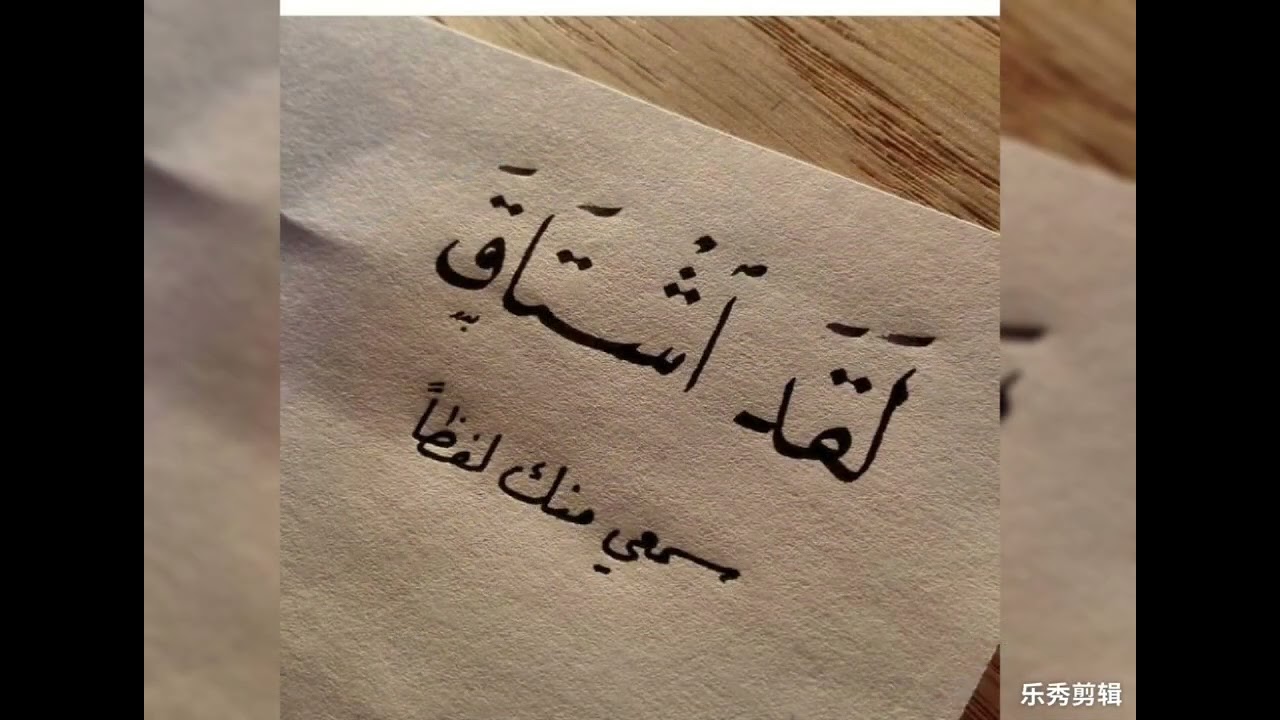 لَقَد اَشْتَاقَ
مسمعي منك لفظاً
乐秀剪辑